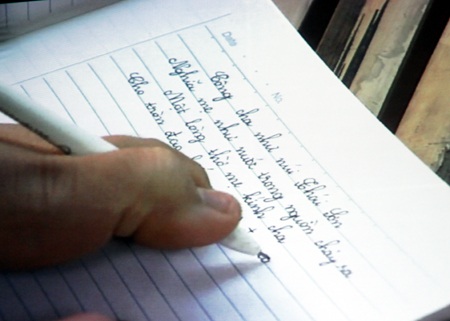 Date No
Công cha như núi Thái Sơn
Nghĩa mẹ như nước trong nguồn chảy ra
Một lòng thờ mẹ kính cha
Cho tròn đạo